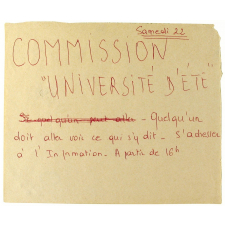 Samedi 22
COMMISSION
"UNIVERSITÉ D'ÉTÉ"
Si quelqu'un peut aller - Quelqu'un
doit aller voir ce qui s'y dit - S'adresser
à l'Information - A partir de 16h